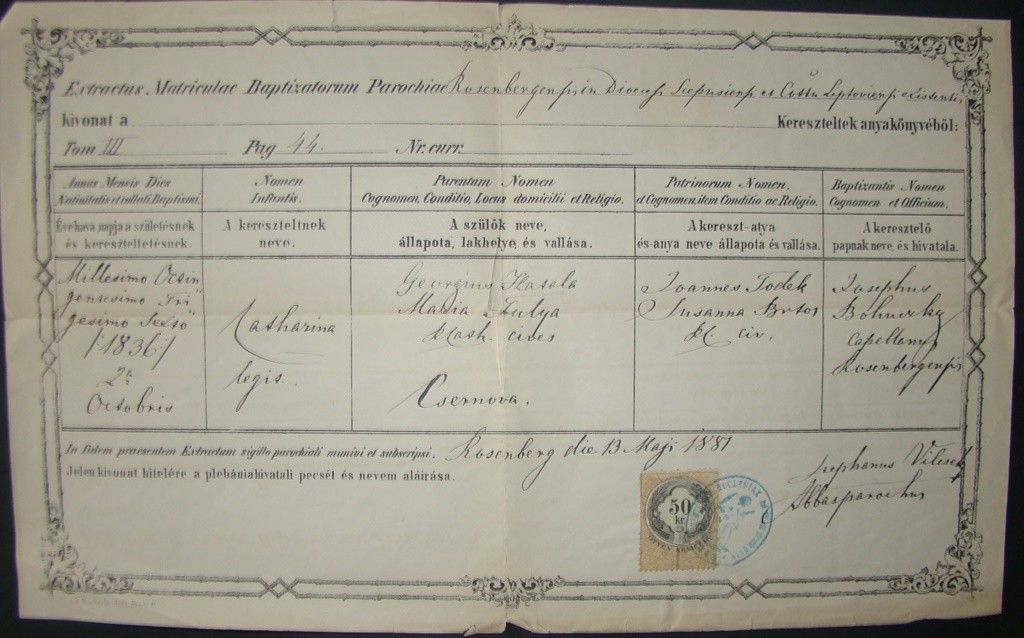 Extractus Matriculae Baptizatorum Parochiae Rosenbergensis in Dioecesi Scepusiensi et Cottu Liptoviensi existentis
Kivonat a Kereszteltek anyakönyvéből:
Tom III Pag 44. Nr. curr.
Annus Mensis Dies
Nativitatis et collati Baptismi.
Nomen
Infantis.
Parentum Nomen
Cognomen, Conditio, Locus domicilii et Religio.
Patrinorum Nomen,
et Cognomen, item Conditio ac Religio.
Baptizantis Nomen
Cognomen et Officium.
Éve hava napja a születésnek
és kereszteltetésnek.
A kereszteltnek
neve.
A szülők neve,
állapota, lakhelye, és vallása.
A kereszt-atya
és-anya neve állapota és vallása.
A keresztelő
papnak neve, és hivatala.
Millesimo Octin
gentesimo Tri
gesimo Sexto
/:1836:/
2a
Octobris
Catharina
legit.
Georgius
Maria
cives
Csernova.
Joannes
Susanna
civ.
Josephus
Capellanus
Rosenbergensis
In fidem praesentem Extractum sigillo parochiali munivi et subscripsi. Rosenberg die 13 Maji 1881
Jelen kivonat hitelére a plebániahivatali pecsét és nevem aláírása.
Stephanus
Abbas parochus
50
kr
ECCLESIAE